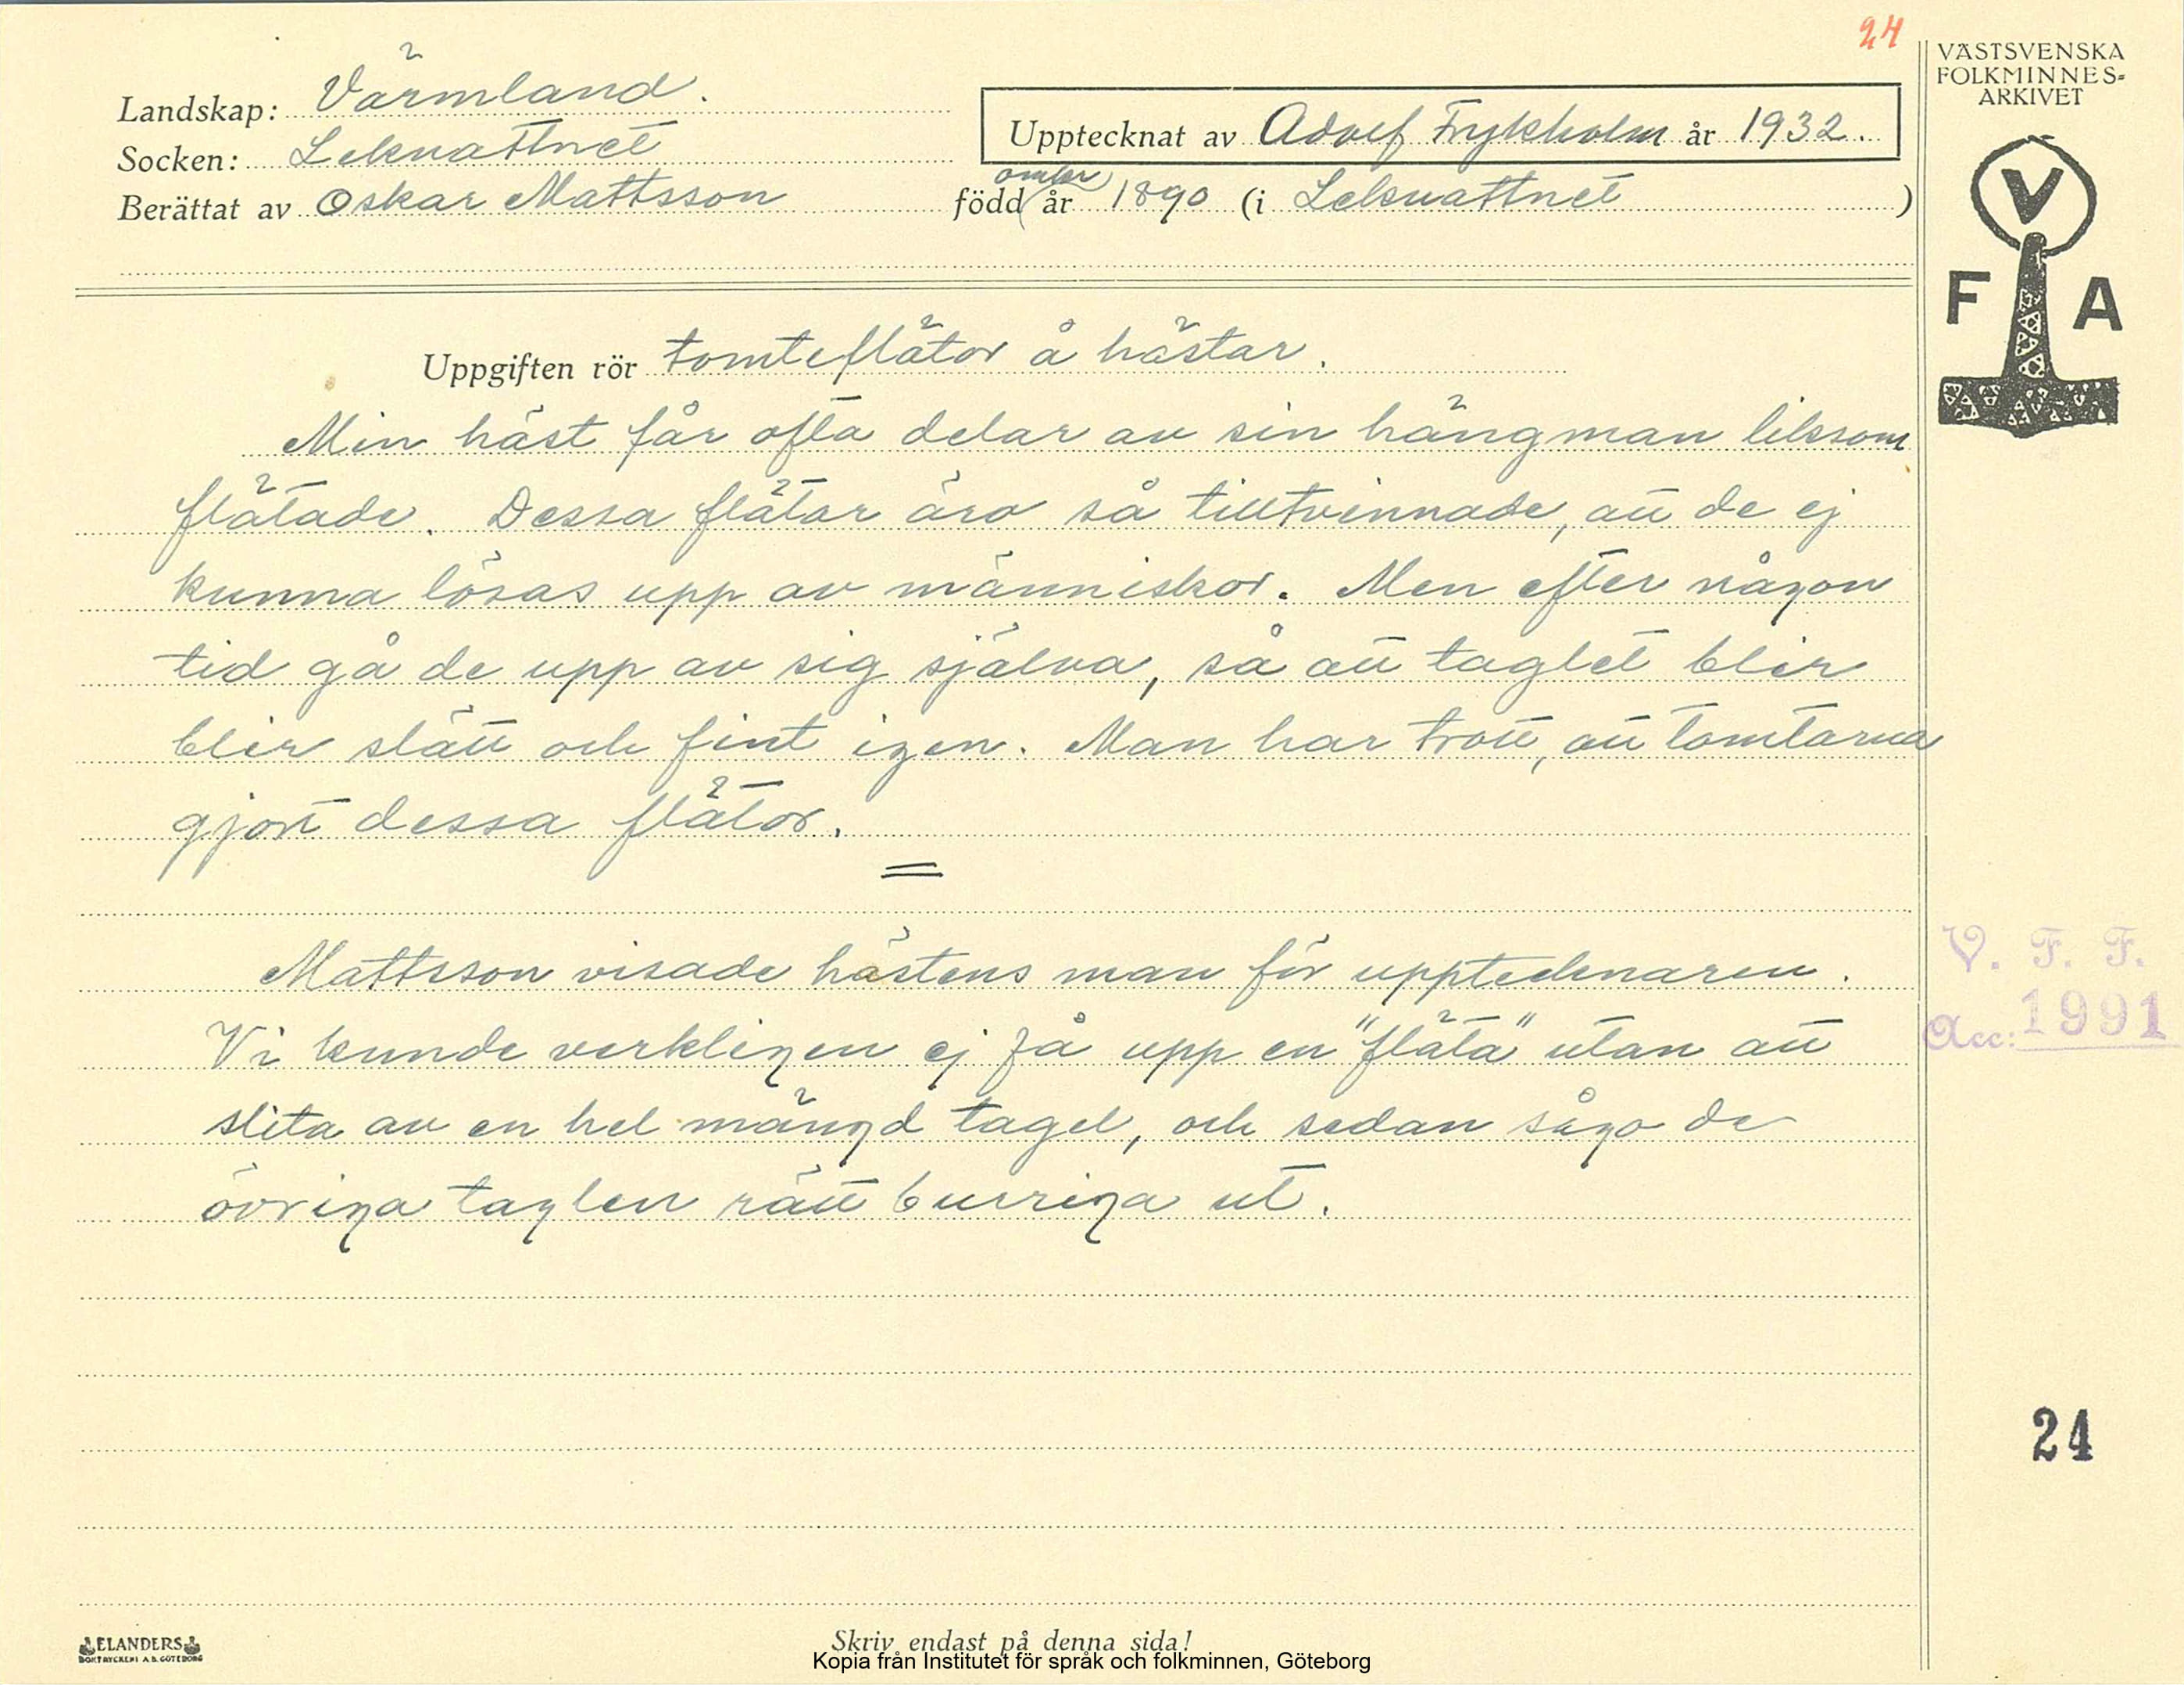 24
VÄSTSVENSKA
FOLKMINNES=
ARKIVET
Landskap: Värmland.
Socken: Lekvattnet
Upptecknat av Adolf Frykholm år 1932.
Berättat av Oskar Mattsson född omkr år 1890 (i Lekvattnet)
V
F A
Uppgiften rör tomteflätor å hästar.
Min häst får ofta delar av sin hängman liksom
flätade. Dessa flätar äro så tilltvinnade, att de ej
kunna lösas upp av människor. Men efter någon
tid gå de upp av sig själva, så att taglet blir
blir slätt och fint igen. Man har trott, att tomtarna
gjort dessa flätor.
Mattsson visade hästens man för upptecknaren.
Vi kunde verkligen ej få upp en "fläta" utan att
slita av en hel mängd tagel, och sedan sågo de
övriga taglen rätt burriga ut.
V. F. F.
Acc: 1991
24
ELANDERS
BOKTRYCKERI A.B. GÖTEBORG
Skriv endast på denna sida!
Kopia från Institutet för språk och folkminnen, Göteborg